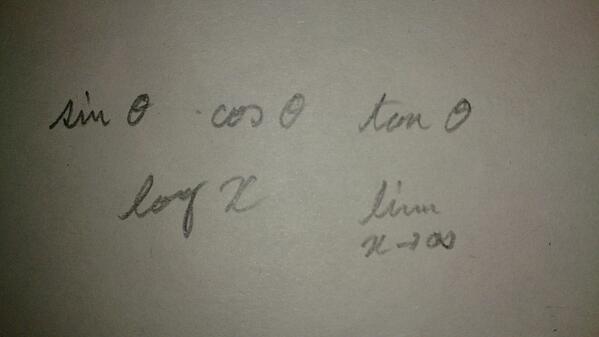 sin θ cos θ tan θ
log x lim
x→∞